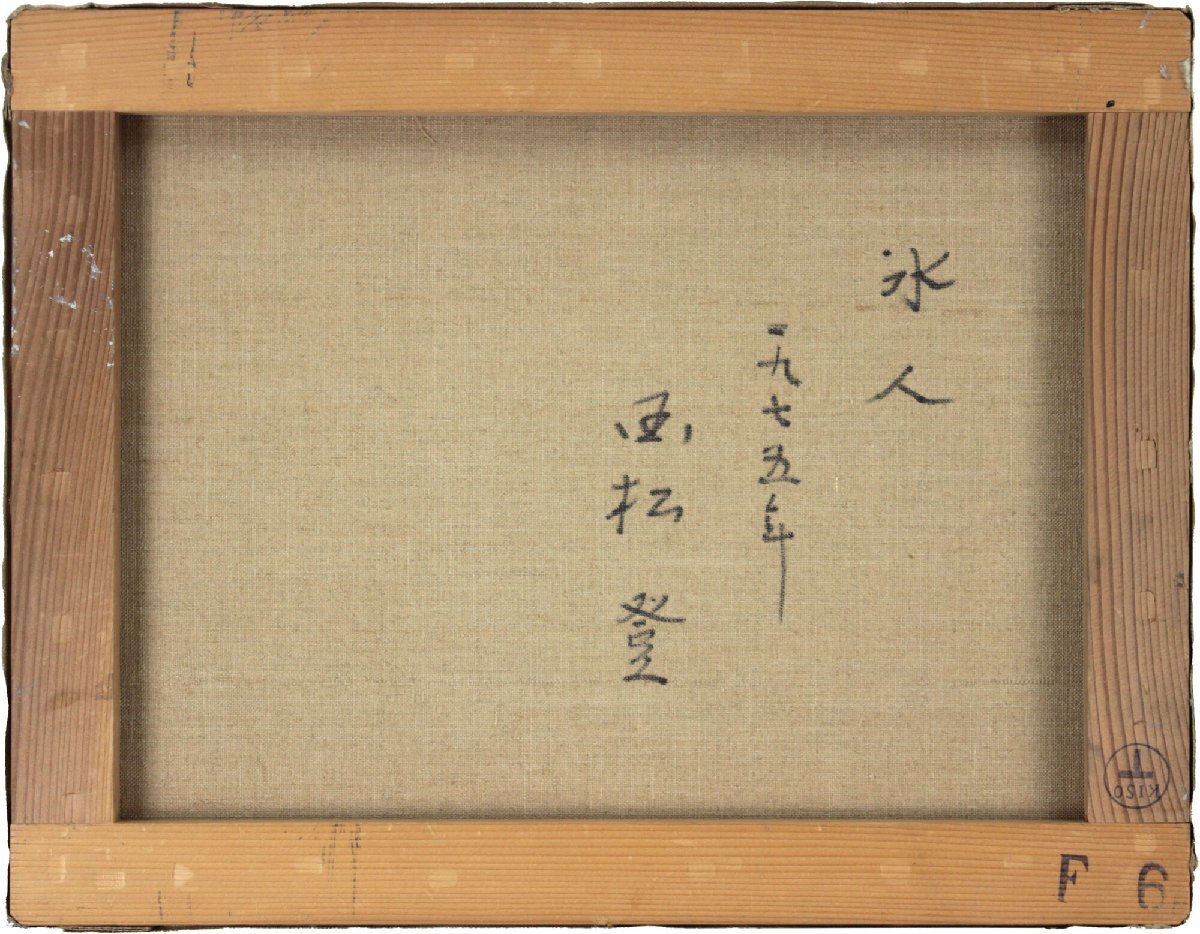 氷人
一九七五年
国松 登
KISO
F 6